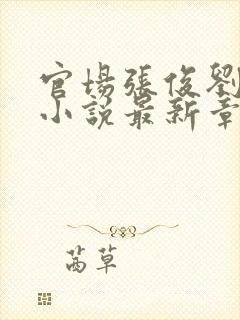 官場張俊劉
小說最新章
茜草